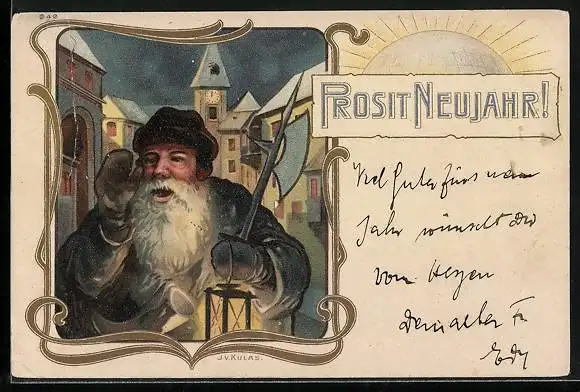 242
PROSIT NEUJAHR!
Viel Gutes fürs neue
Jahr wünscht dir
von Herzen
Dein alter Fr
Edy
J.V. KULAS.